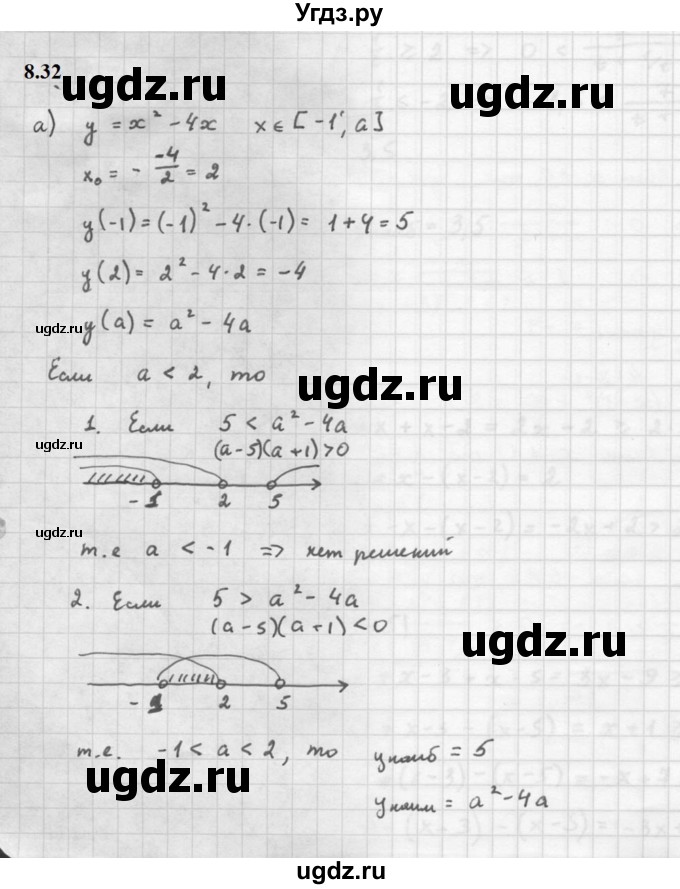 Угдз.ру
8.32
ugdz.ru
ugdz.ru
а) y = x² - 4x x ∈ [-1; a]
x₀ = - -4/2 = 2
y(-1) = (-1)² - 4·(-1) = 1 + 4 = 5
y(2) = 2² - 4·2 = -4
ugdz.ru
y(a) = a² - 4a
ugdz.ru
Если a < 2, то
1. Если 5 < a² - 4a
ugdz.ru
(a-5)(a+1) > 0
-1 2 5
ugdz.ru
т.е a < -1 => нет решений
2. Если 5 > a² - 4a
(a-5)(a+1) < 0
ugdz.ru
-1 2 5
т.е. -1 < a < 2, то yнаиб = 5
ugdz.ru
yнаим = a² - 4a
ugdz.ru